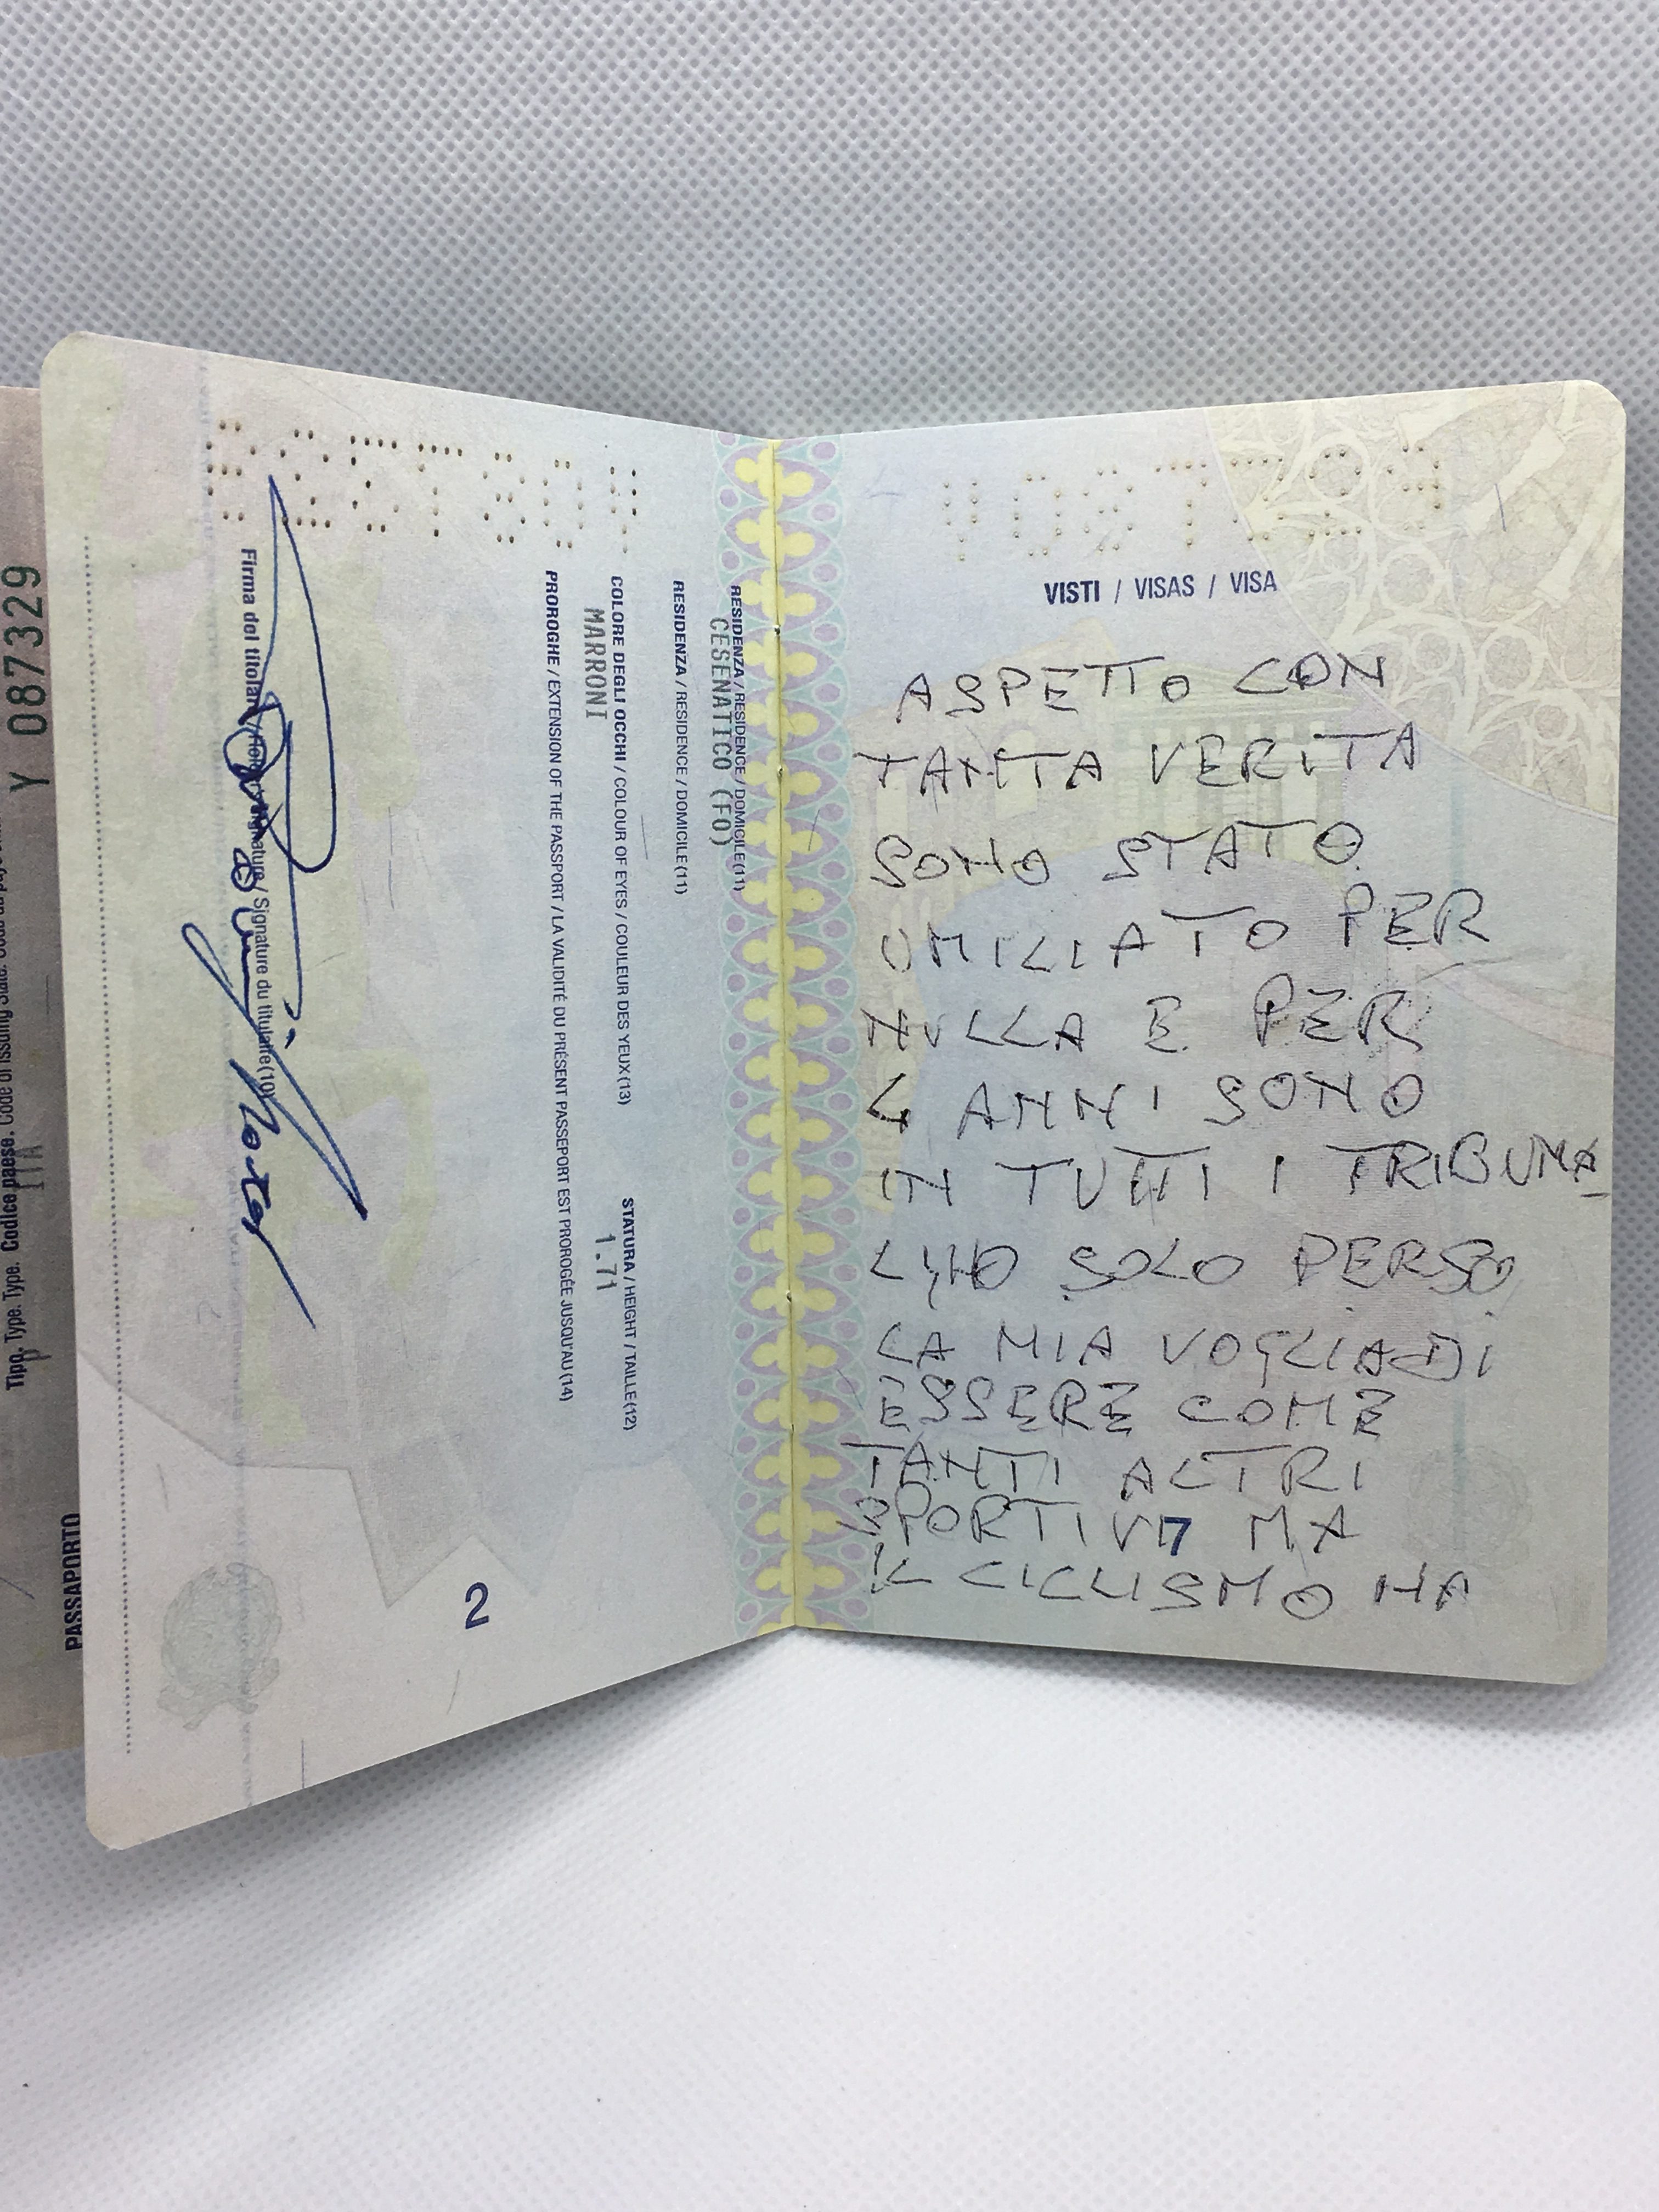 Y 087329
Tipo. Type. Type. Codice paese.
P
ITA
PASSAPORTO
RESIDENZA / RESIDENCE / DOMICILE (11)
CESENATICO (FO)
RESIDENZA / RESIDENCE / DOMICILE (11)
COLORE DEGLI OCCHI / COLOUR OF EYES / COULEUR DES YEUX (13)
MARRONI
STATURA / HEIGHT / TAILLE (12)
1.71
PROROGHE / EXTENSION OF THE PASSPORT / LA VALIDITÉ DU PRÉSENT PASSEPORT EST PROROGÉE JUSQU'AU (14)
Firma del titolare / Signature du titulaire (10)
2
VISTI / VISAS / VISA
ASPETTO CON
TANTA VERITA
SONO STATO
UMILIATO PER
NULLA E PER
4 ANNI SONO
IN TUTTI I TRIBUNA_
LI, HO SOLO PERSO
LA MIA VOGLIA DI
ESSERE COME
TANTI ALTRI
SPORTIVI MA
7
IL CICLISMO HA